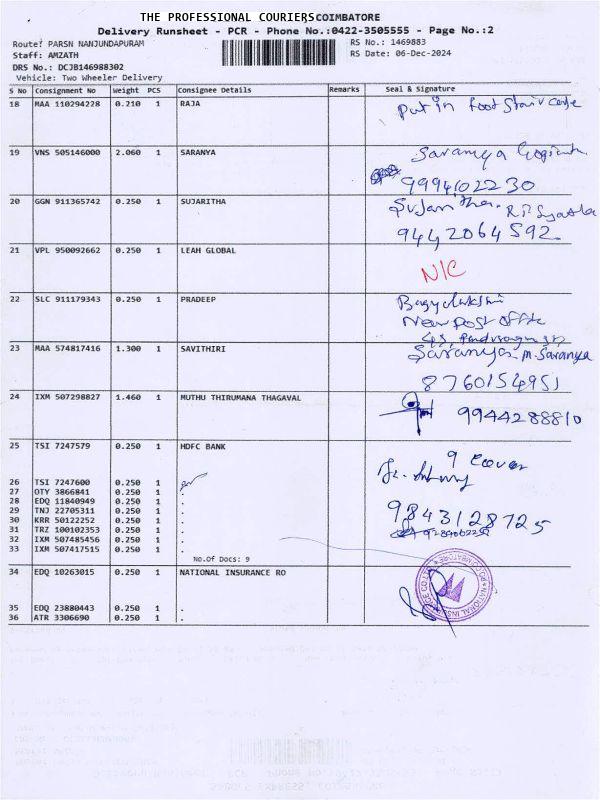 THE PROFESSIONAL COURIERS COIMBATORE
Delivery Runsheet - PCR - Phone No.:0422-3505555 - Page No.:2
Route: PARSN NANJUNDAPURAM
RS No.: 1469883
Staff: AMZATH
RS Date: 06-Dec-2024
DRS No.: DCJB146988302
Vehicle: Two Wheeler Delivery
S No Consignment No Weight PCS Consignee Details Remarks Seal & Signature
18 MAA 110294228 0.210 1 RAJA
Put in foot stair case
19 VNS 505146000 2.060 1 SARANYA
Saranya
9994102230
20 GGN 911365742 0.250 1 SUJARITHA
9442064592
21 VPL 950092662 0.250 1 LEAH GLOBAL
N/C
22 SLC 911179343 0.250 1 PRADEEP
Near post office
23 MAA 574817416 1.300 1 SAVITHIRI
Saranya M. Saranya
8760154951
24 IXM 507298827 1.460 1 MUTHU THIRUMANA THAGAVAL
9944288810
25 TSI 7247579 0.250 1 HDFC BANK
9 cover
26 TSI 7247600 0.250 1 .
27 OTY 3866841 0.250 1 .
28 EDQ 11840949 0.250 1 .
29 TNJ 22705311 0.250 1 .
30 KRR 50122252 0.250 1 .
9843128725
31 TRZ 100102353 0.250 1 .
32 IXM 507485456 0.250 1 .
33 IXM 507417515 0.250 1 .
No.Of Docs: 9
34 EDQ 10263015 0.250 1 NATIONAL INSURANCE RO
35 EDQ 23880443 0.250 1 .
36 ATR 3306690 0.250 1 .